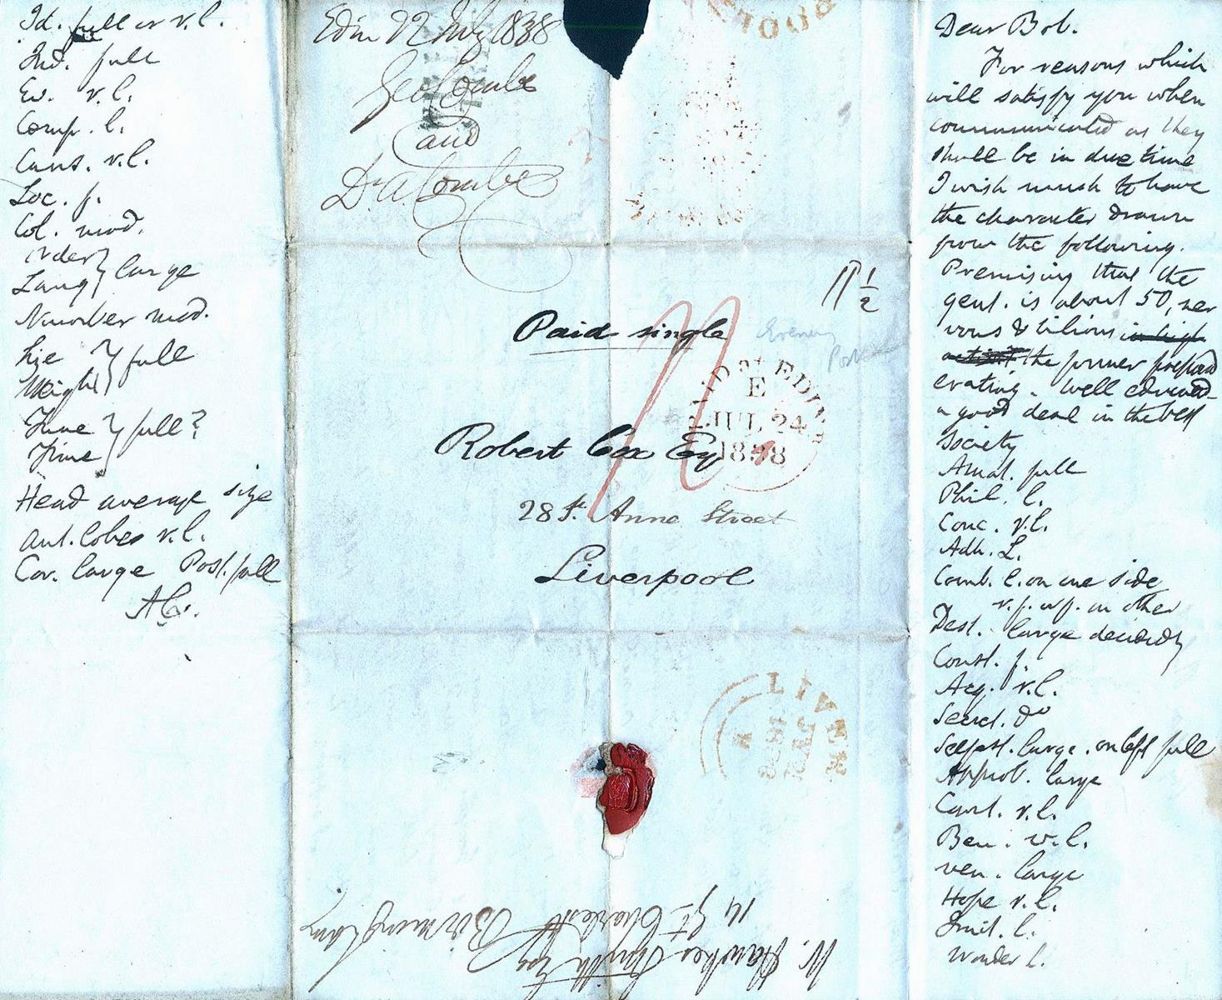 Id. full or v. l.
Ind. full
Ev. v. l.
Comp. l.
Caus. v. l.
Loc. f.
Col. mod.
Order
Lang large
Number mod.
Size
Weight full
Tune full?
Time
Head average size
Ant. lobes v. l.
Cor. large Post. full
A C.
Edin 22 July 1838
Geo Combe
and
Dr A Combe
11 1/2
Paid single
Evening
PAID AT EDINR
E
JUL 24
1838
Robert Cox Esq
28 St. Anne Street
Liverpool
LIVER
W. Hawkes Smith Esq
14 Gt. Charles St
Birmingham
Dear Bob.
For reasons which
will satisfy you when
communicated as they
shall be in due time
I wish much to have
the character drawn
from the following.
Premising that the
gent. is about 50, ner
vous & bilious in high
the former prepond
erating. Well educated
a good deal in the best
society
Amat. full
Phil. l.
Conc. v. l.
Adh. L.
Comb. l. on one side
v. f. or f. on other
Dest. large decidedly
Const. f.
Acq. v. l.
Secret. do
Self est. large. on left full
Approb. large
Caut. v. l.
Ben. v. l.
Ven. large
Hope v. l.
Imit. l.
Wonder l.